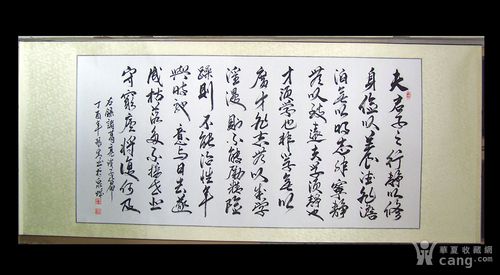 夫君子之行靜以修
身儉以養德非澹
泊無以明志非寧靜
無以致遠夫學須靜也
才須學也非學無以
廣才非志無以成學
淫漫則不能勵精險
躁則不能治性年
與時馳意與日去遂
成枯落多不接世悲
守窮廬將復何及
右錄諸葛亮誡子篇
丁酉年書於
華夏收藏網
cang.com